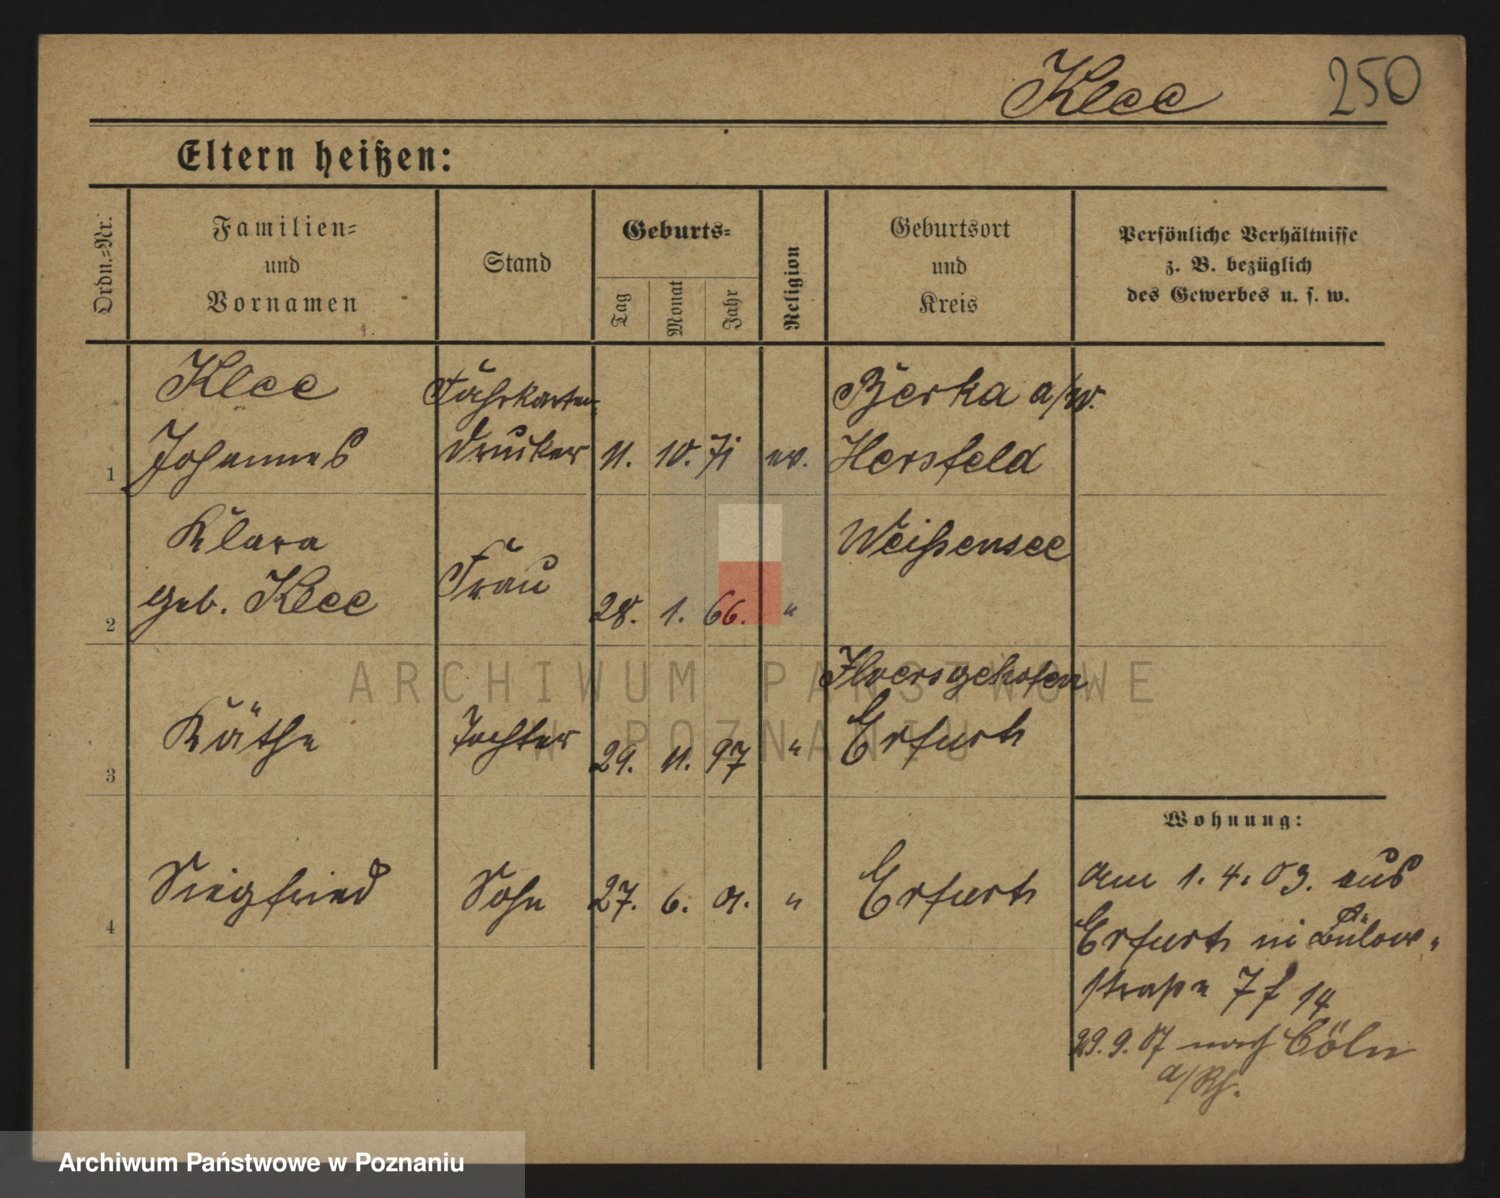 Klee 250
Eltern heißen:
Ordn.-Nr.
Familien-
und
Vornamen
Stand
Geburts-
Tag
Monat
Jahr
Religion
Geburtsort
und
Kreis
Persönliche Verhältnisse
z. B. bezüglich
des Gewerbes u. s. w.
Klee Fahrkarten- Berka a/W.
1 Johannes drucker 11. 10. 71 ev. Hersfeld
Klara Weißensee
2 geb. Klee Frau 28. 1. 66. "
Ilversgehofen
3 Käthe Tochter 29. 11. 97 " Erfurt
Wohnung:
4 Siegfried Sohn 27. 6. 01. " Erfurt
Am 1. 4. 03. aus
Erfurt in Bülow-
straße 7 14
29. 9. 07 nach Cöln
a/Rh.
ARCHIWUM PAŃSTWOWE
W POZNANIU
Archiwum Państwowe w Poznaniu